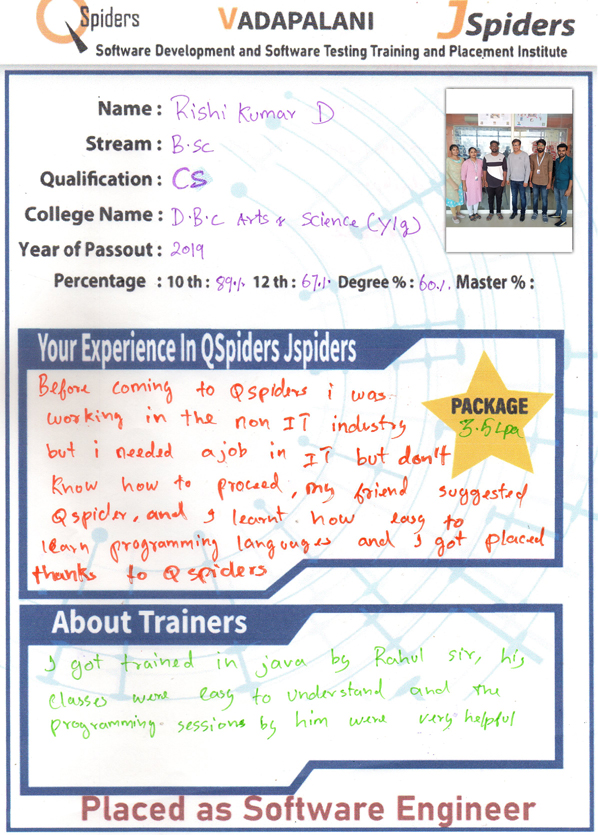 QSpiders VADAPALANI JSpiders
Software Development and Software Testing Training and Placement Institute
Name : Rishi Kumar D
Stream : B.sc
Qualification : CS
College Name : D.B.C Arts & Science (Ylg)
Year of Passout : 2019
Percentage : 10 th : 89% 12 th : 67% Degree % : 60% Master % :
Your Experience In QSpiders Jspiders
PACKAGE
3.5 Lpa
Before coming to Qspiders i was
working in the non IT industry
but i needed a job in IT but don't
know how to proceed, my friend suggested
Qspider, and I learnt how easy to
learn programming languages and I got placed
thanks to Qspiders
About Trainers
I got trained in java by Rahul sir, his
classes were easy to understand and the
programming sessions by him were very helpful
Placed as Software Engineer